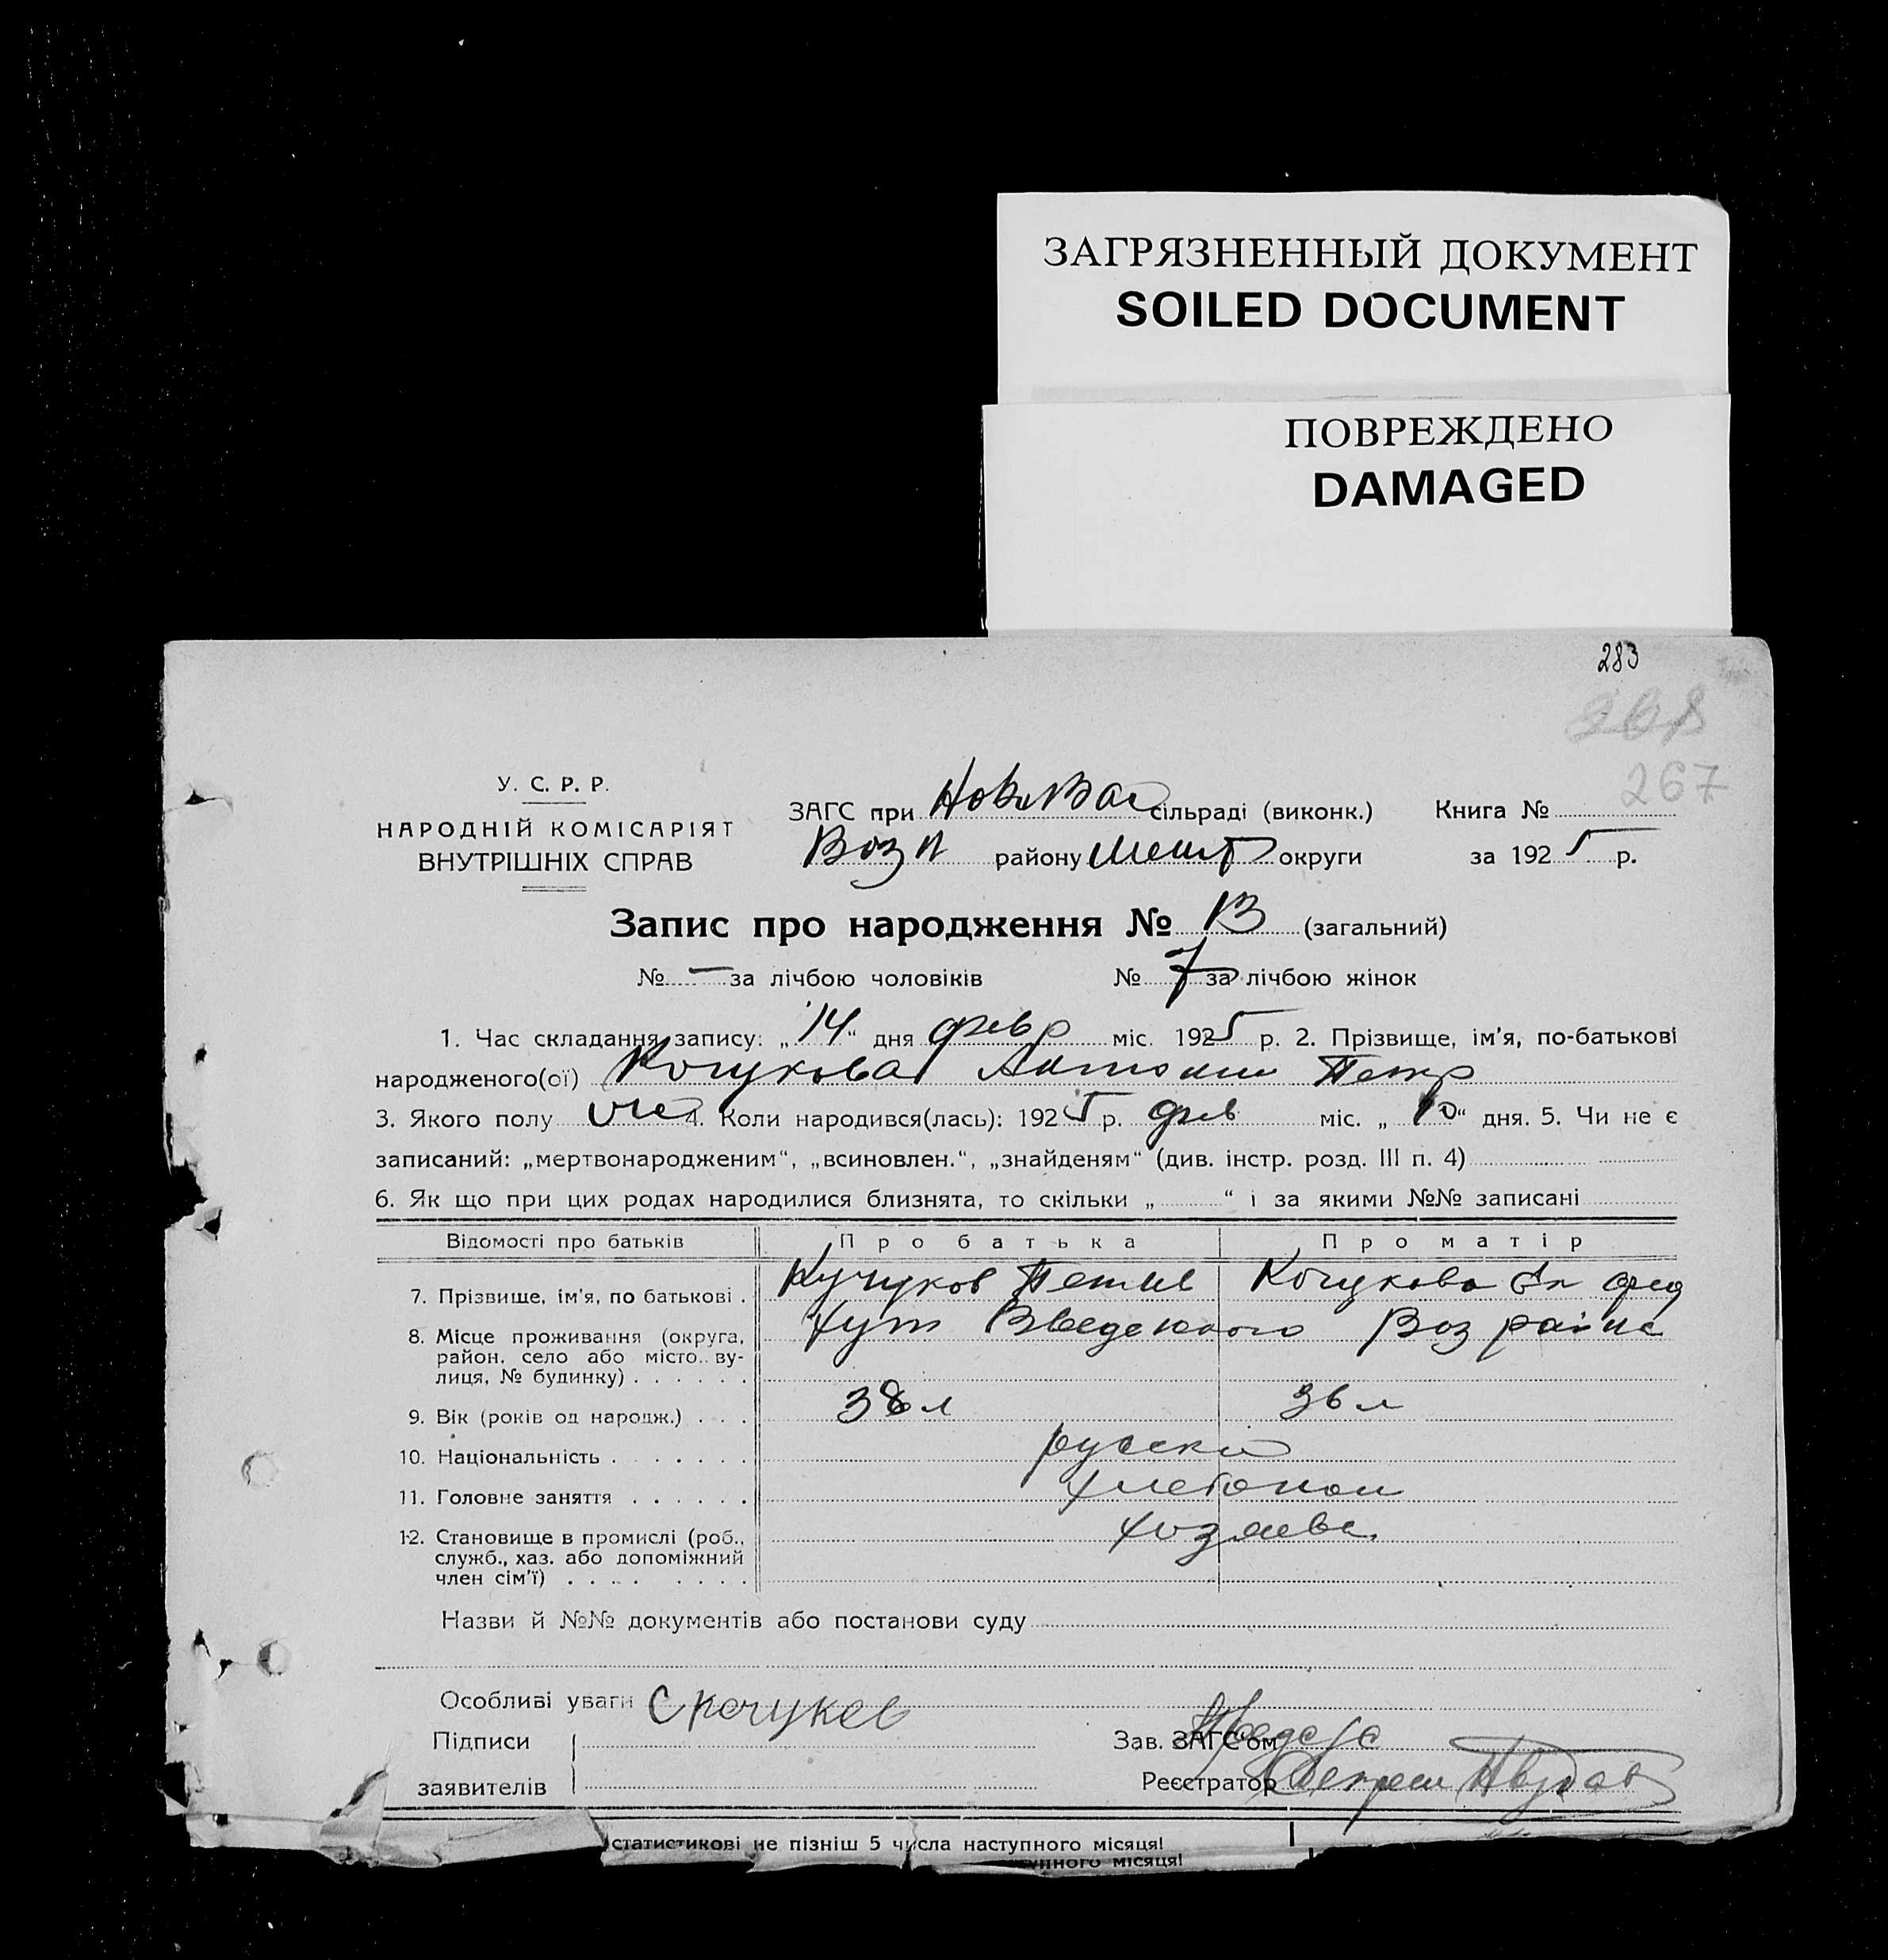 ЗАГРЯЗНЕННЫЙ ДОКУМЕНТ
SOILED DOCUMENT
ПОВРЕЖДЕНО
DAMAGED
283
268
267
У. С. Р. Р.
НАРОДНІЙ КОМІСАРІЯТ
ВНУТРІШНІХ СПРАВ
ЗАГС при НовоВас сільраді (виконк.) Книга №
Возн району округи за 1925 р.
Запис про народження № 13 (загальний)
№ — за лічбою чоловіків № 7 за лічбою жінок
1. Час складання запису: „14“ дня февр міс. 1925 р. 2. Прізвище, ім'я, по-батькові
народженого(ої) Кочукова Антонин Петр
3. Якого полу 4. Коли народився(лась): 1925 р. фев міс. „10“ дня. 5. Чи не є
записаний: „мертвонародженим“, „всиновлен.“, „знайденям“ (див. інстр. розд. III п. 4)
6. Як що при цих родах народилися близнята, то скільки „ “ і за якими №№ записані
Відомості про батьків Про батька Про матір
7. Прізвище, ім'я, по батькові . Кучуков Кочукова
8. Місце проживання (округа, хут Введенского Воз раина
район, село або місто, ву-
лиця, № будинку) . . . . . .
9. Вік (років од народж.) . . . 38 л 36 л
10. Національність . . . . . . . русски
11. Головне заняття . . . . . .
12. Становище в промислі (роб.,
служб., хаз. або допоміжний
член сім'ї) . . . . . . . .
Назви й №№ документів або постанови суду
Особливі уваги С Кочуков
Підписи Зав. ЗАГС'ом
заявителів Реєстратор
статистикові не пізніш 5 числа наступного місяця!
упного місяця!